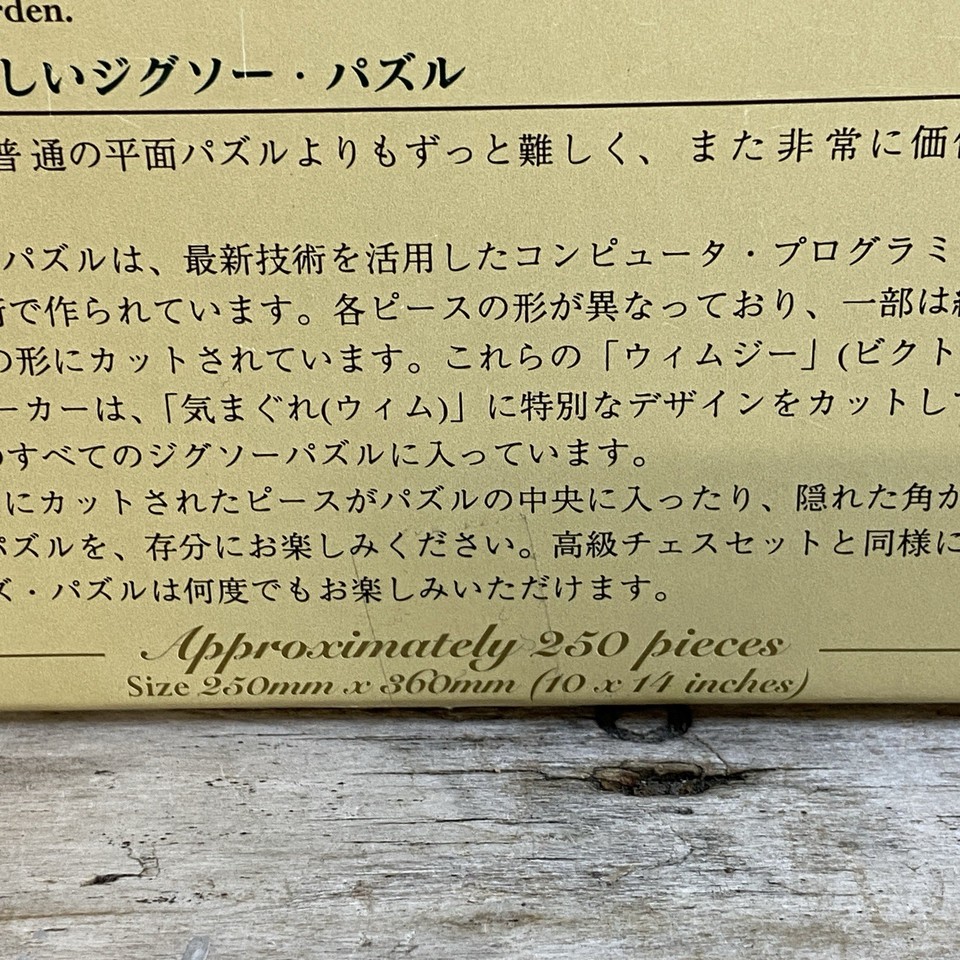 rden.
しいジグソー・パズル
普通の平面パズルよりもずっと難しく、また非常に価
パズルは、最新技術を活用したコンピュータ・プログラミ
で作られています。各ピースの形が異なっており、一部は
の形にカットされています。これらの「ウィムジー」(ビクト
ーカーは、「気まぐれ(ウィム)」に特別なデザインをカットし
のすべてのジグソーパズルに入っています。
にカットされたピースがパズルの中央に入ったり、隠れた角が
パズルを、存分にお楽しみください。高級チェスセットと同様に
ズ・パズルは何度でもお楽しみいただけます。
Approximately 250 pieces
Size 250mm x 360mm (10 x 14 inches)